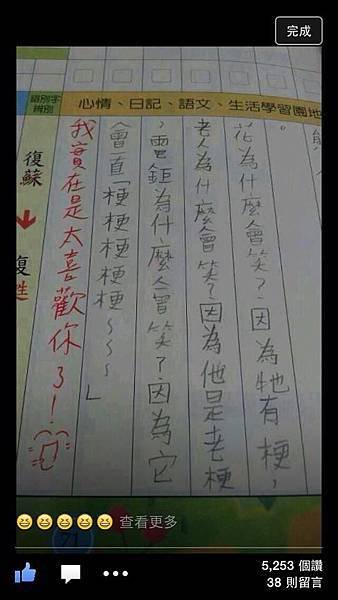 完成
心情、日記、語文、生活學習園地
。
花為什麼會笑？因為牠有梗，
老人為什麼會笑？因為他是老梗
，電鉅為什麼會笑？因為它
會一直「梗梗梗梗梗～～～」
我實在是太喜歡你了！
復蘇
復甦
71
查看更多
5,253 個讚
38 則留言